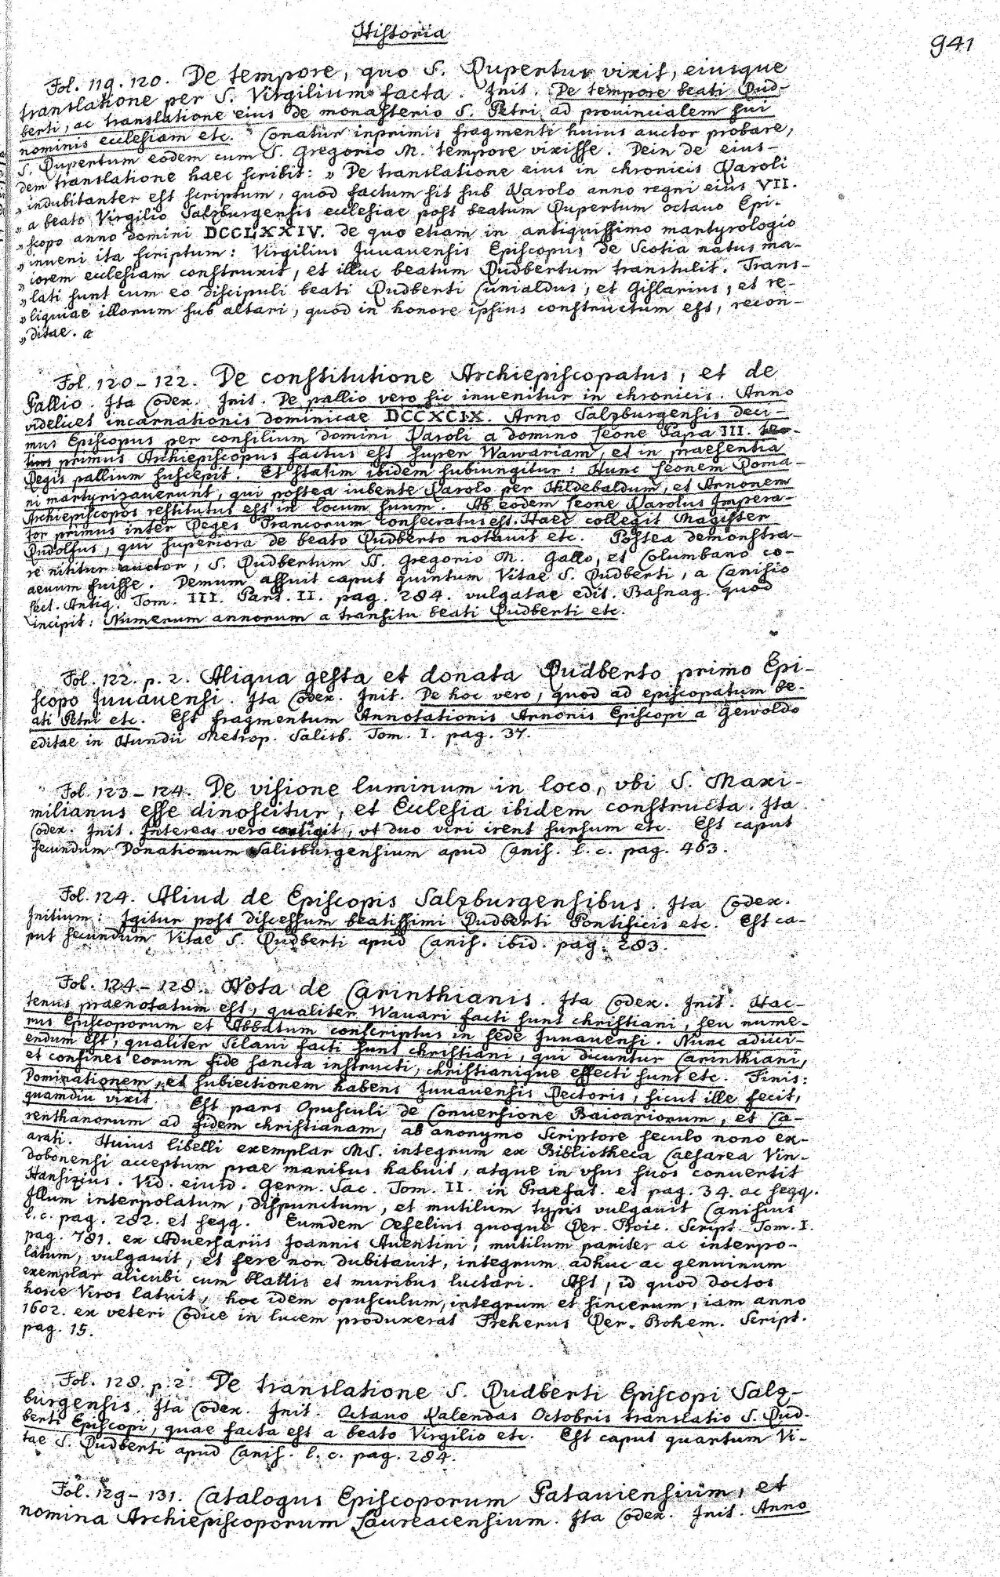 Historia
941
Fol. 119. 120. De tempore, quo S. Rupertus vixit, eiusque
translatione per S. Virgilium facta. Init. De tempore beati Rud-
berti, ac translatione eius de monasterio S. Petri ad provincialem sui
nominis ecclesiam etc. Conatur inprimis fragmenti huius auctor probare,
S. Rupertum eodem cum S. Gregorio M. tempore vixisse. Dein de eius-
dem translatione haec scribit: „De translatione eius in chronicis Karoli
„indubitanter est scriptum, quod factum sit sub Karolo anno regni eius VII.
„a beato Virgilio Salzburgensis ecclesiae post beatum Rupertum octavo Epi-
„scopo anno domini DCCLXXIV. de quo etiam in antiquissimo martyrologio
„inveni ita scriptum: Virgilius Juvavensis Episcopus de Scotia natus ma-
„iorem ecclesiam construxit, et illuc beatum Rudbertum transtulit. Trans-
„lati sunt cum eo discipuli beati Rudberti Cunialdus, et Gislarius, et re-
„liquiae illorum sub altari, quod in honore ipsius constructum est, recon-
„ditae. a
Fol. 120-122. De constitutione Archiepiscopatus, et de
Pallio. Ita Codex. Init. De pallio vero sic invenitur in chronicis. Anno
videlicet incarnationis dominicae DCCXCIX. Arno Salzburgensis deci-
mus Episcopus per consilium domini Karoli a domino Leone Papa III.
primus Archiepiscopus factus est super Wawariam, et in praesentia
Regis pallium suscepit. Et statim ibidem subiungitur: Hunc Leonem Roma-
ni martyrizaverunt, qui postea iubente Karolo per Hildebaldum, et Arnonem
Archiepiscopos restitutus est in locum suum. Ab eodem Leone Karolus Impera-
tor primus inter Reges Francorum consecratus est. Haec collegit Magister
Rudolfus, qui superiora de beato Rudberto notavit etc. Postea demonstra-
re nititur auctor, S. Rudbertum SS. Gregorio M. Gallo, et Columbano co-
aevum fuisse. Demum assuit caput quintum Vitae S. Rudberti, a Canisio
Lect. Antiq. Tom. III. Part. II. pag. 284. vulgatae edit. Basnag. quod
incipit: Numerum annorum a transitu beati Rudberti etc.
Fol. 122. p. 2. Aliqua gesta et donata Rudberto primo Epi-
scopo Juvavensi. Ita Codex. Init. De hoc vero, quod ad episcopatum be-
ati Petri etc. Est fragmentum Annotationis Arnonis Episcopi a Gewoldo
editae in Hundii Metrop. Salisb. Tom. I. pag. 37.
Fol. 123-124. De visione luminum in loco, ubi S. Maxi-
milianus esse dinoscitur, et Ecclesia ibidem constructa. Ita
Codex. Init. Interea vero contigit, ut duo viri irent sursum etc. Est caput
secundum Donationum Salisburgensium apud Canis. l. c. pag. 463.
Fol. 124. Aliud de Episcopis Salzburgensibus. Ita Codex.
Initium: Igitur post discessum beatissimi Rudberti Pontificis etc. Est ca-
put secundum Vitae S. Rudberti apud Canis. ibid. pag. 283.
Fol. 124-128. Nota de Carinthianis. Ita Codex. Init. Hac-
tenus praenotatum est, qualiter Wavari facti sunt christiani, seu nume-
rus Episcoporum et Abbatum conscriptus in sede Juvavensi. Nunc adiici-
endum est, qualiter Sclavi facti sunt christiani, qui dicuntur Carinthiani,
et confines eorum fide sancta instructi, christianique effecti sunt etc. Finis:
Dominationem, et subiectionem habens Juvavensis Rectoris, sicut ille fecit,
quamdiu vixit. Est pars Opusculi de Conversione Baioariorum, et Ca-
renthanorum ad fidem christianam, ab anonymo Scriptore seculo nono ex-
arati. Huius libelli exemplar MS. integrum ex Bibliotheca Caesarea Vin-
dobonensi acceptum prae manibus habuit, atque in usus suos convertit
Hansizius. Vid. eiusd. Germ. Sac. Tom. II. in Praefat. et pag. 34. ac seqq.
Illum interpolatum, dispunctum, et mutilum typis vulgavit Canisius
l. c. pag. 282. et seqq. Eumdem Oefelius quoque Rer. Boic. Script. Tom. I.
pag. 781. ex Adversariis Joannis Aventini, mutilum pariter ac interpo-
latum, vulgavit, et fere non dubitavit, integrum adhuc ac genuinum
exemplar alicubi cum blattis et muribus luctari. Ast, id quod doctos
hosce Viros latuit, hoc idem opusculum, integrum et sincerum, iam anno
1602. ex veteri Codice in lucem produxerat Freherus Rer. Bohem. Script.
pag. 15.
Fol. 128. p. 2. De translatione S. Rudberti Episcopi Salz-
burgensis. Ita Codex. Init. Octavo Kalendas Octobris translatio S. Rud-
berti Episcopi, quae facta est a beato Virgilio etc. Est caput quartum Vi-
tae S. Rudberti apud Canis. l. c. pag. 284.
Fol. 129-131. Catalogus Episcoporum Pataviensium, et
nomina Archiepiscoporum Laureacensium. Ita Codex. Init. Anno